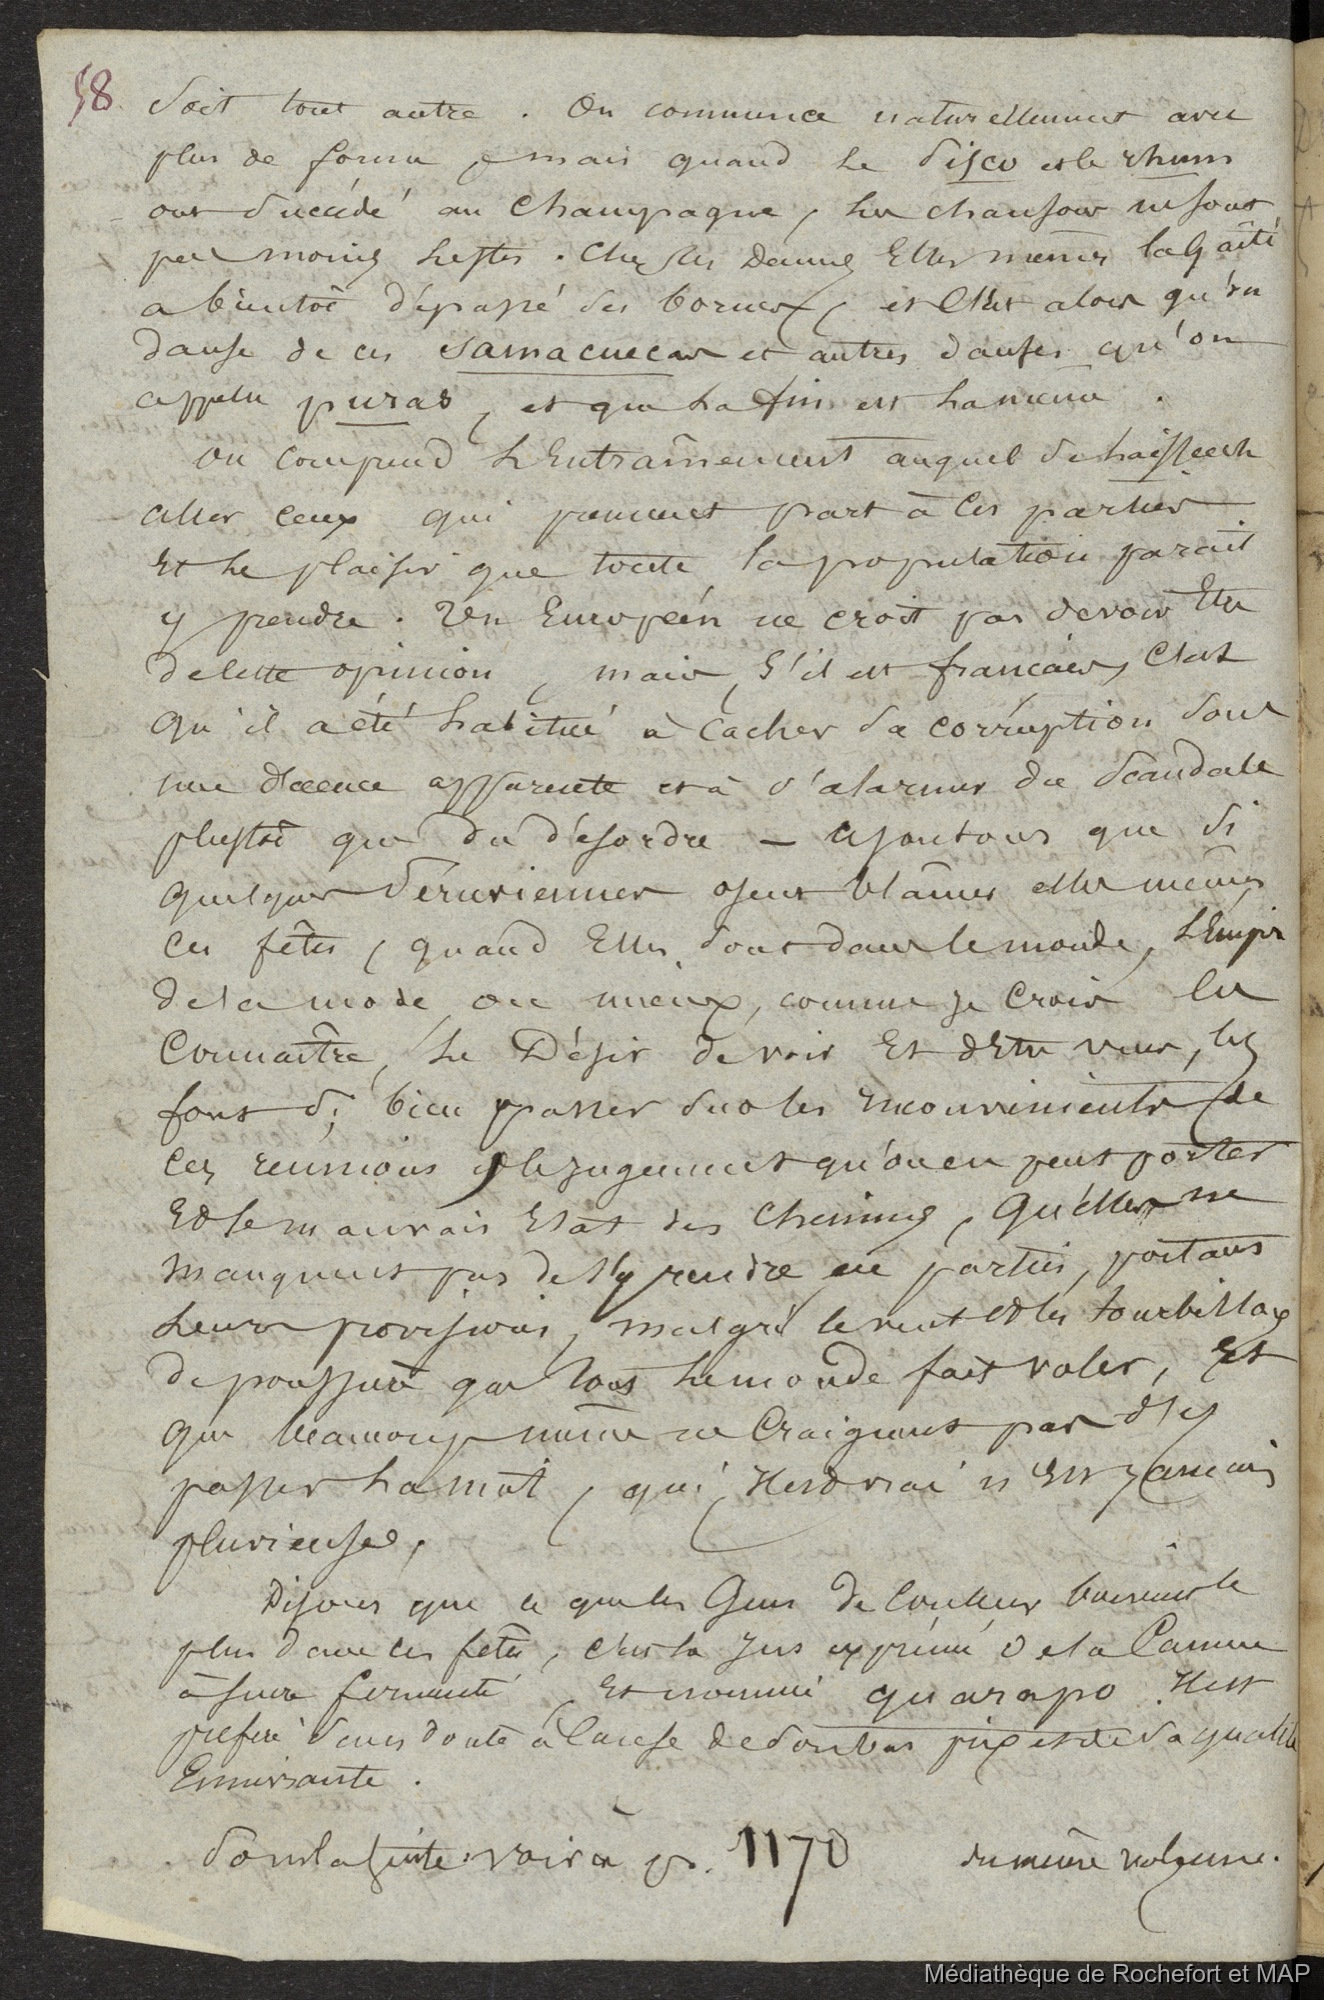 58
soit tout autre. On commence naturellement avec
plus de forme, mais quand le Pisco et le rhum
ont succédé au Champagne, les chansons ne sont
pas moins lestes. Chez les Dames Elles mêmes la gaîté
a bientôt dépassé les bornes, et C'est alors qu'on
danse de ces samacuecas et autres danses qu'on
appelle puras, et que la fin est la même.
On comprend L'Entraînement auquel se laissent
aller ceux qui prennent part à ces parties
Et le plaisir que toute la population paraît
y prendre. Un Européen ne croit pas devoir Etre
de cette opinion, mais, s'il est français, C'est
qu'il a été habitué à cacher sa corruption sous
une décence apparente et à s'alarmer du scandale
plustôt que du désordre — ajoutons que si
quelques Péruviennes osent blâmer elles mêmes
ces fêtes, quand Elles sont dans le monde, L'Empire
de la mode ou mieux, comme je Crois les
Connaître, le Désir de voir Et d'Etre vues, les
font si bien passer sur les inconvénients de
ces réunions, le jugement qu'on en peut porter
Et le mauvais Etat des Chemins, Qu'elles ne
manquent pas de s'y rendre en parties, portant
leurs provisions, malgré le vent et les tourbillons
de poussière que tout le monde fait voler, Et
que beaucoup même ne Craignent pas d'y
passer la nuit, qui, Il est vrai n'Est jamais
pluvieuse.
Disons que ce que les Gens de Couleur boivent le
plus dans ces fêtes, c'est le jus exprimé de la Canne
à sucre fermenté, Et nommé guarapo. Il est
préféré sans doute à cause de son bas prix et de sa qualité
Enivrante.
Pour la suite voir à p. 1170 du même volume.
Médiathèque de Rochefort et MAP